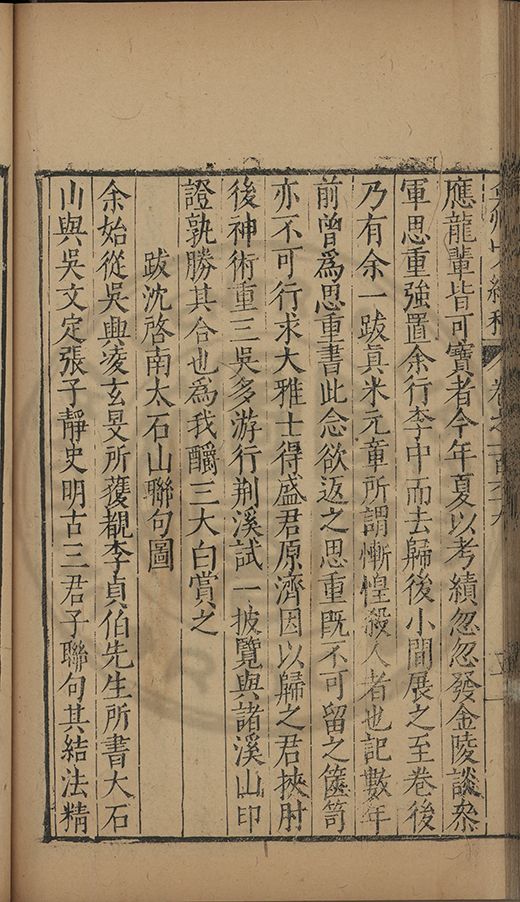 應龍輩皆可寶者今年夏以考績忽忽發金陵談參
軍思重強置余行李中而去歸後小間展之至卷後
乃有余一跋真米元章所謂慚惶殺人者也記數年
前曾為思重書此念欲返之思重既不可留之篋笥
亦不可行求大雅士得盛君原濟因以歸之君挾肘
後神術重三吳多游行荆溪試一披覽與諸溪山印
證孰勝其合也為我釂三大白賞之
跋沈啓南太石山聯句圖
余始從吳興凌玄旻所獲覩李貞伯先生所書大石
山與吳文定張子靜史明古三君子聯句其結法精